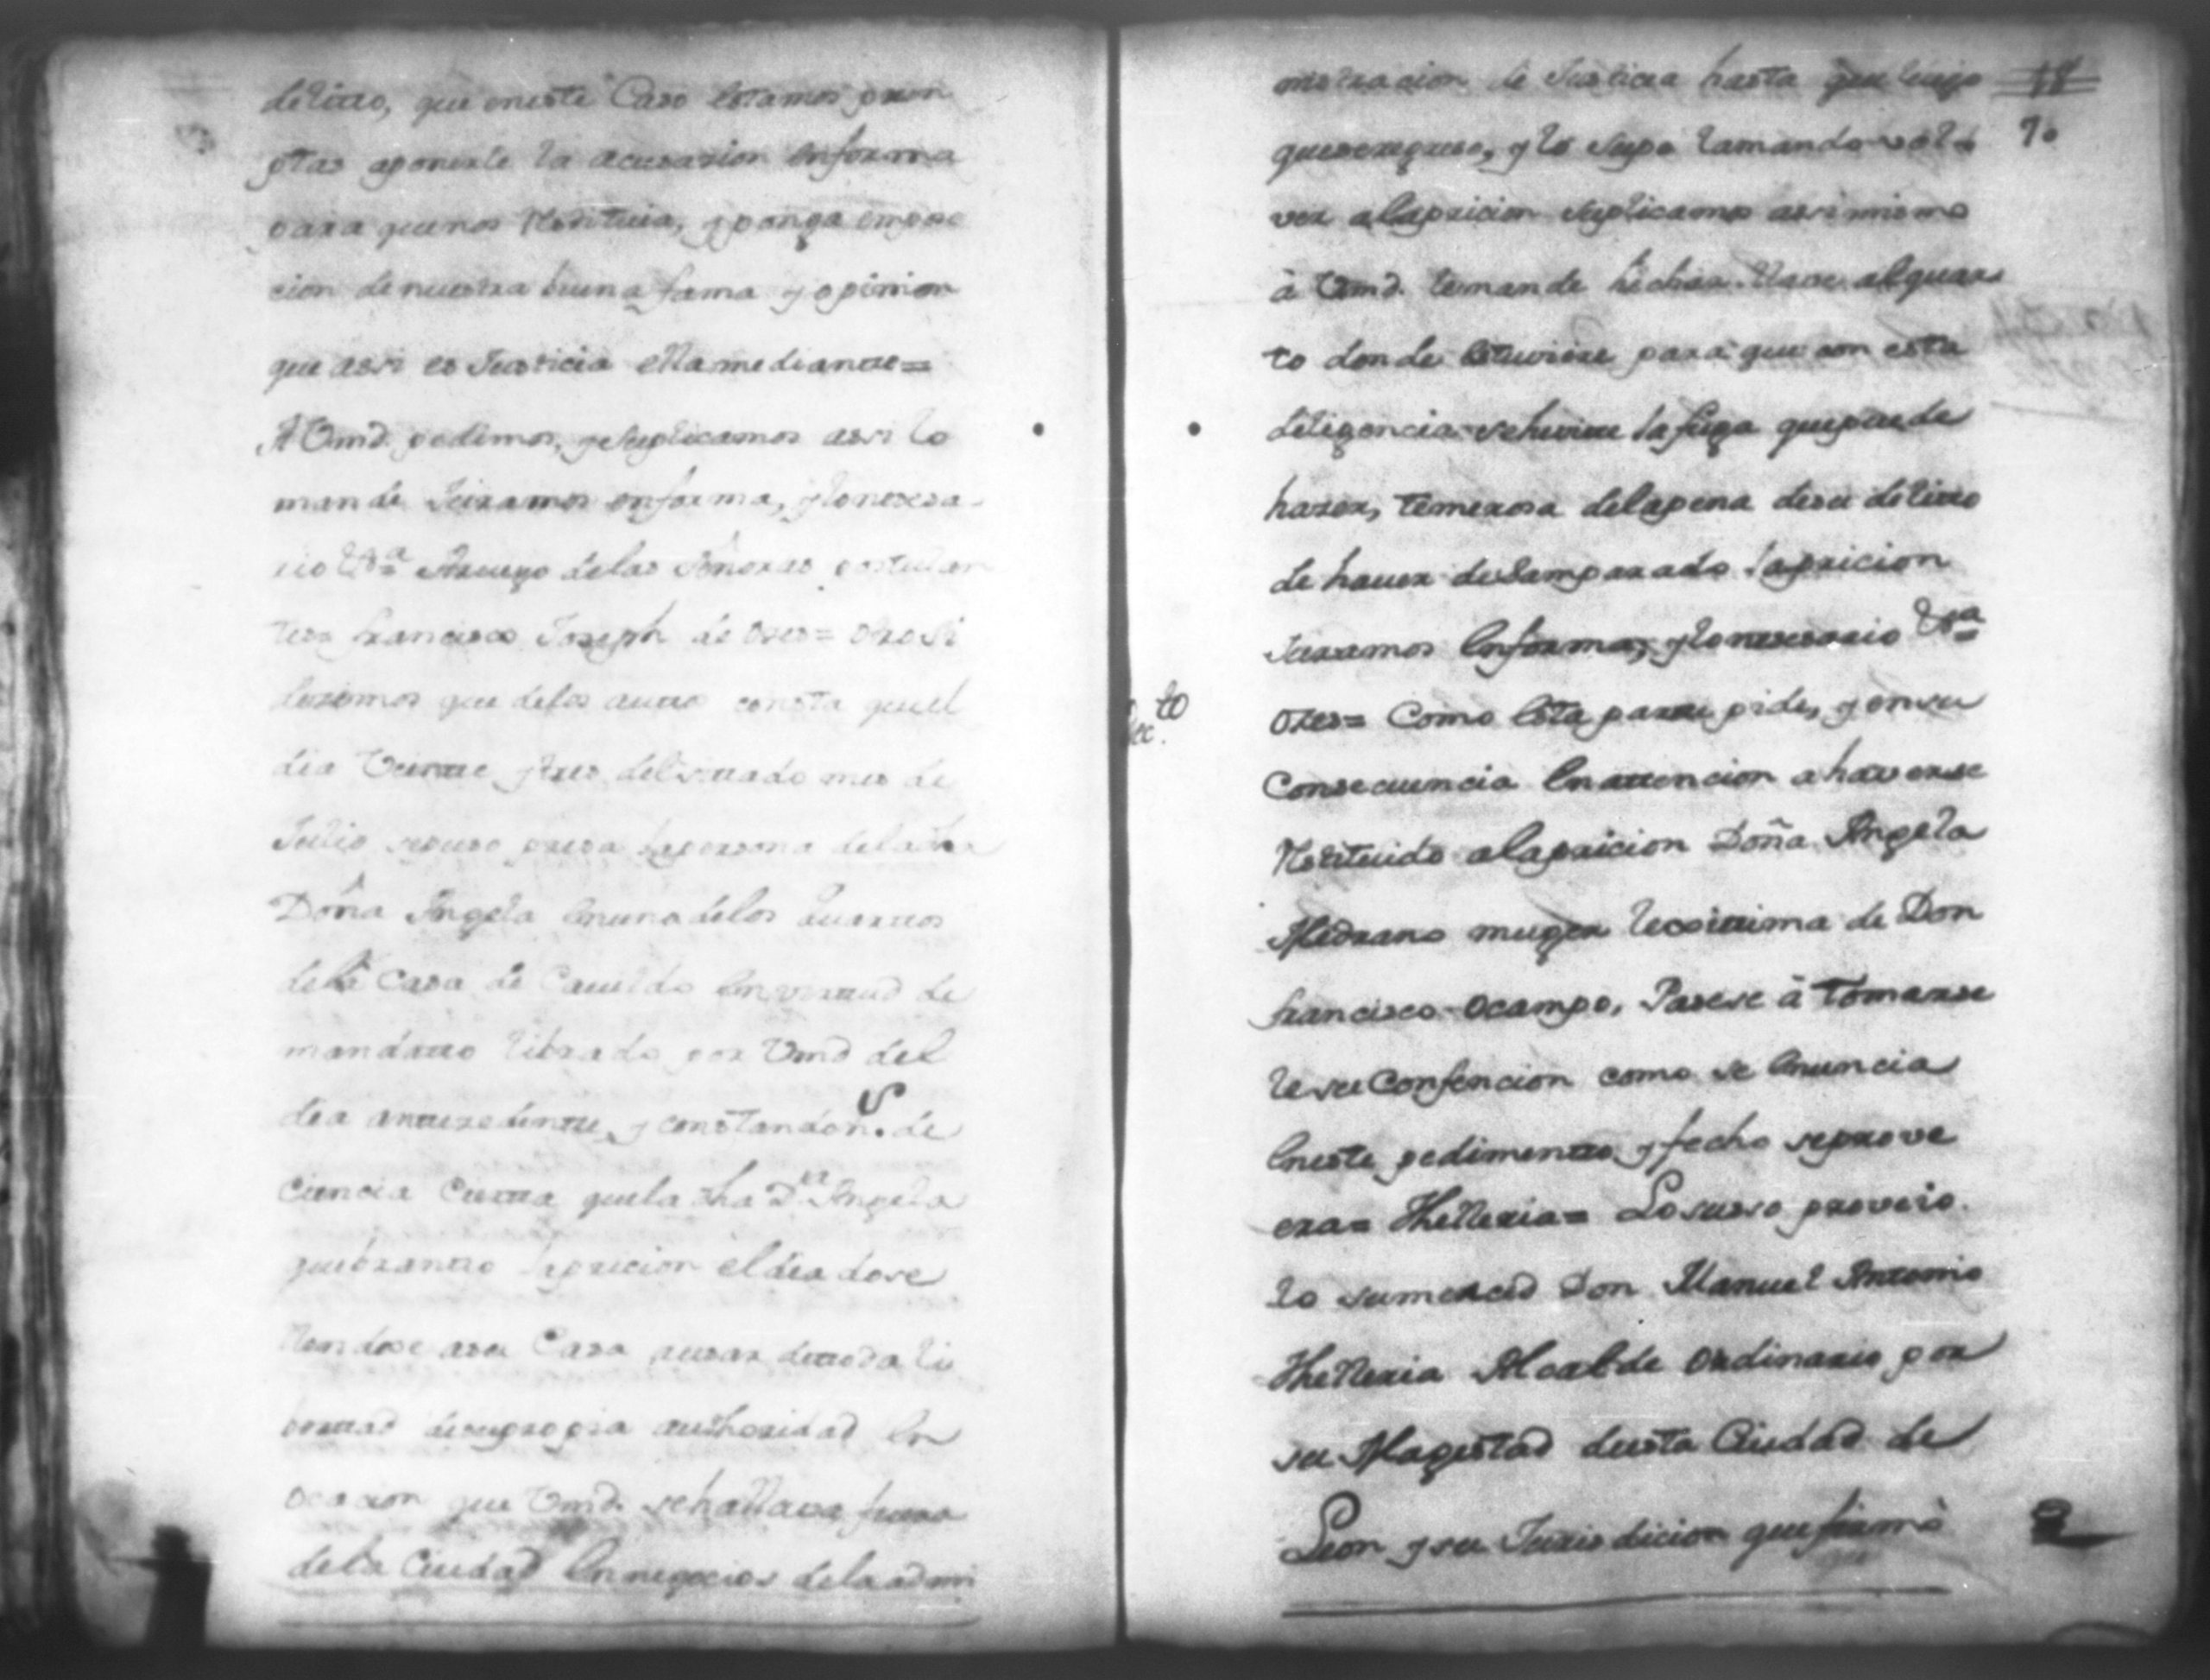 delitto, que eneste Caso Estamos pron
ptas aponerle la acusasion Enforma
para quenos Restituia, y ponga enpose
cion denuestra buena fama y opinion
que assi es Justicia ella mediante=
A Vmd. pedimos, y Suplicamos assi lo
mande Juramos enforma, y lonesesa-
rio Vtta Aruego delas Señoras postulan
tes= Francisco Joseph de Ores= Otro Si
desimos que delos auttos consta queel
dia Veintte y tres, delsittado mes de
Julio sepuso presa lapersona deladha
Doña Angela Enuno delos Quarttos
dela Casa de Cauildo Envirttud de
mandatto librado por Vmd del
dia anttesedentte, y constandonos de
Ciencia Ciertta quela dha Da Angela
quebrantto lapricion el dia dose
llendose asu Casa ausar dettoda li
berttad desupropia authoridad En
Ocacion que Vmd. sehallava fuera
dela Ciudad Ennegocios dela admi
nistracion de Justicia hasta que luego
queseregreso, y lo Supo lamando vol
ver alapricion Suplicamos assimismo
à Vmd. lemande hechar llave alquar
to donde Estuviere para que con esta
diligencia sehuiue lafuga quepuede
haser, temerosa delapena desu delitto
de hauer desamparado lapricion
Juramos Enforma, y lonesesario Vtta
Ores= Como Esta partte pide, y ensu
Dec.to
Consecuencia Enattencion ahaverse
Restituido alapricion Doña Angela
Medrano muger lecoittima de Don
Francisco Ocampo, Pasese à tomarse
le su Confencion como se Enuncia
Eneste pedimentto, y fecho seprove
era= Thelleria= Losusso proveio
lo sumerced Don Manuel Antonio
Thelleria Alcalde Ordinario por
su Magestad desta Ciudad de
Leon y su Jurisdicion que firmò
18
70